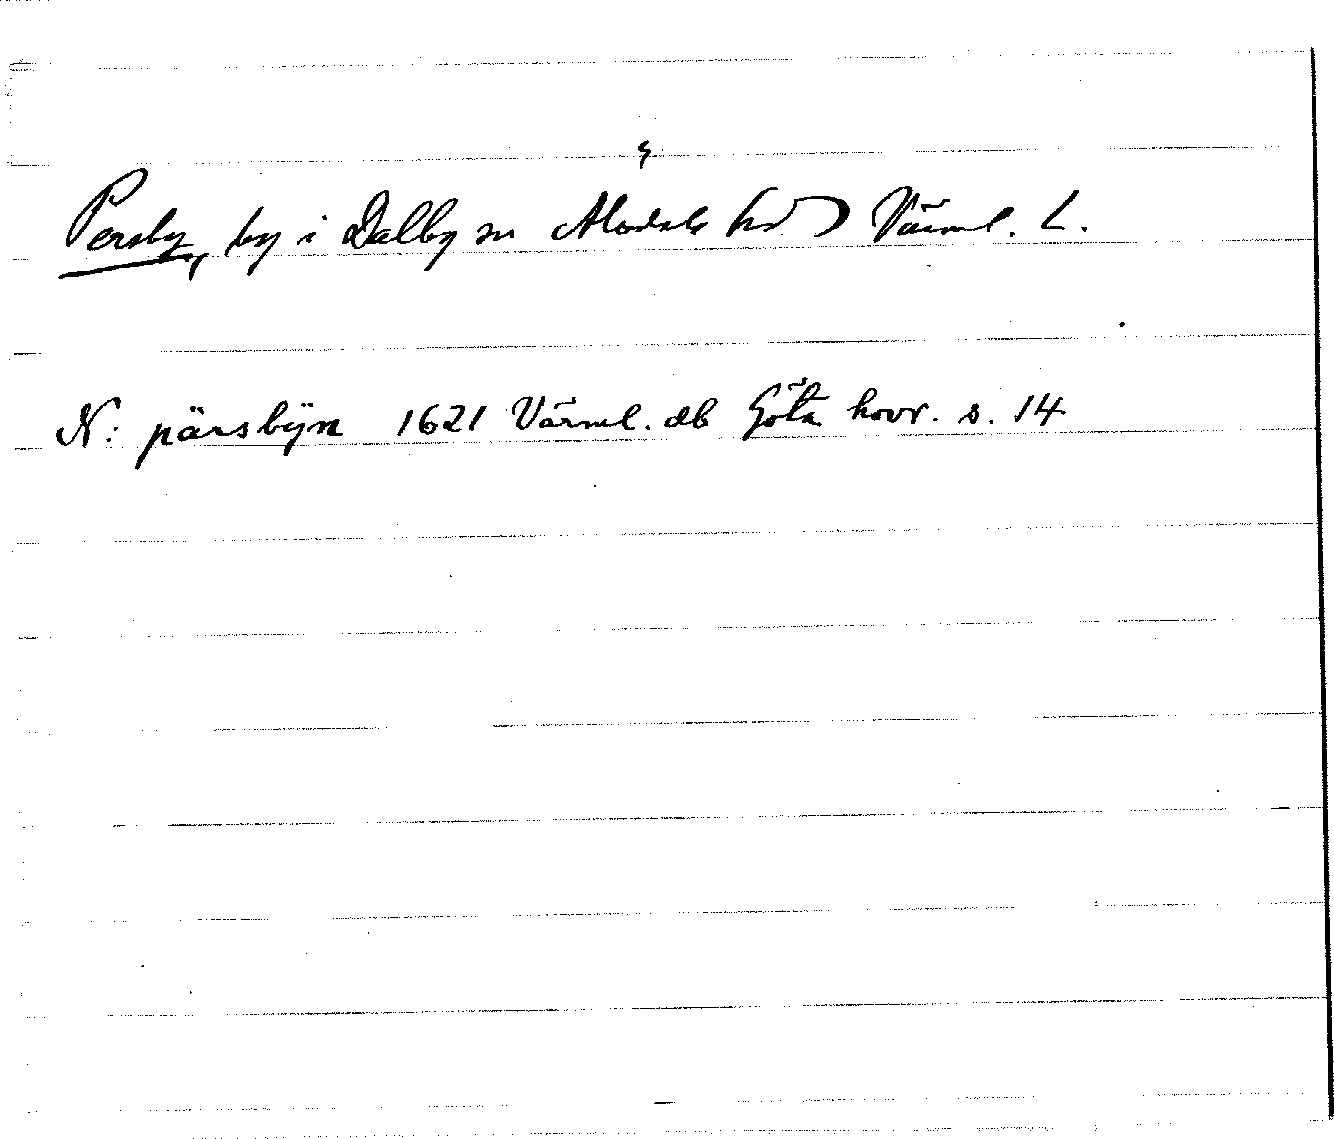 Persby, by i Dalby sn Älvdals hd Värml. L.
N: pärsbÿn 1621 Värml. db Göta hovr. s. 14